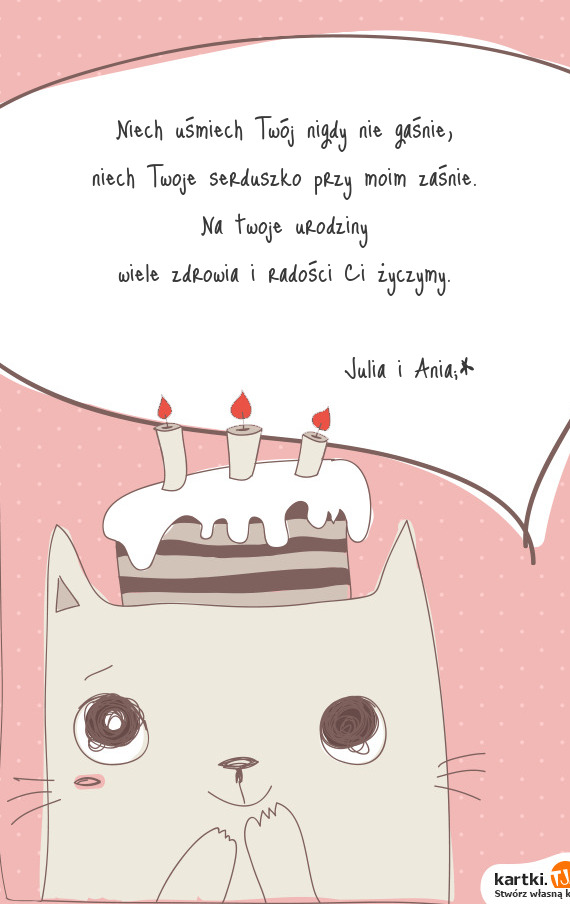 Niech uśmiech Twój nigdy nie gaśnie,
niech Twoje serduszko przy moim zaśnie.
Na twoje urodziny
wiele zdrowia i radości Ci życzymy.
Julia i Ania;*
kartki.TJ
Stwórz własną k